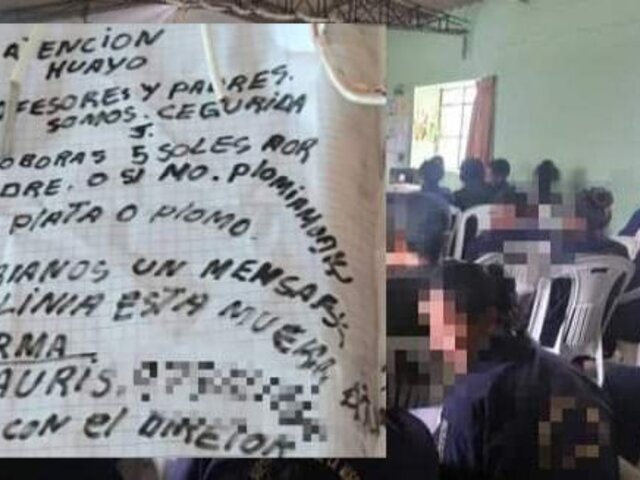 A ENCION
HUAYO
OFESORES Y PADRES.
SOMOS. CEGURIDA
J.
OBORAS 5 SOLES POR
DRE. O SI NO. PlOMIAMOS
PLATA O PlOMO.
BIANOS UN MENSAJE
LINIA ESTA MUERA
RMA.
AURIS.
CON el DIRETOR